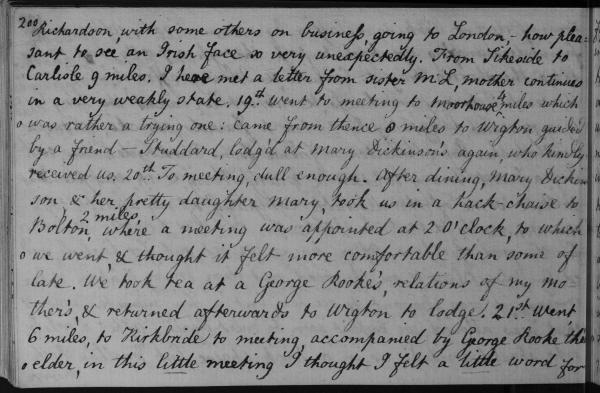 200
Richardson, with some others on business, going to London, - how plea-
sant to see an Irish face so very unexpectedly. From Sikeside to
Carlisle 9 miles. I here met a letter from sister M:L, mother continues
in a very weakly state. 19th went to meeting to Moorhouse 4 miles which
was rather a trying one: came from thence 8 miles to Wigton guided
by a friend - Studdard, lodg'd at Mary Dickinson's again, who kindly
received us. 20th To meeting, dull enough. After dining, Mary Dickin-
son & her pretty daughter Mary, took us in a hack-chaise to
Bolton, 2 miles, where a meeting was appointed at 2 O'clock, to which
we went, & thought it felt more comfortable than some of
late. We took tea at a George Rooke's, relations of my mo-
ther's, & returned afterwards to Wigton to lodge. 21st Went
6 miles, to Kirkbride to meeting, accompanied by George Rooke the
elder, in this little meeting I thought I felt a little word for